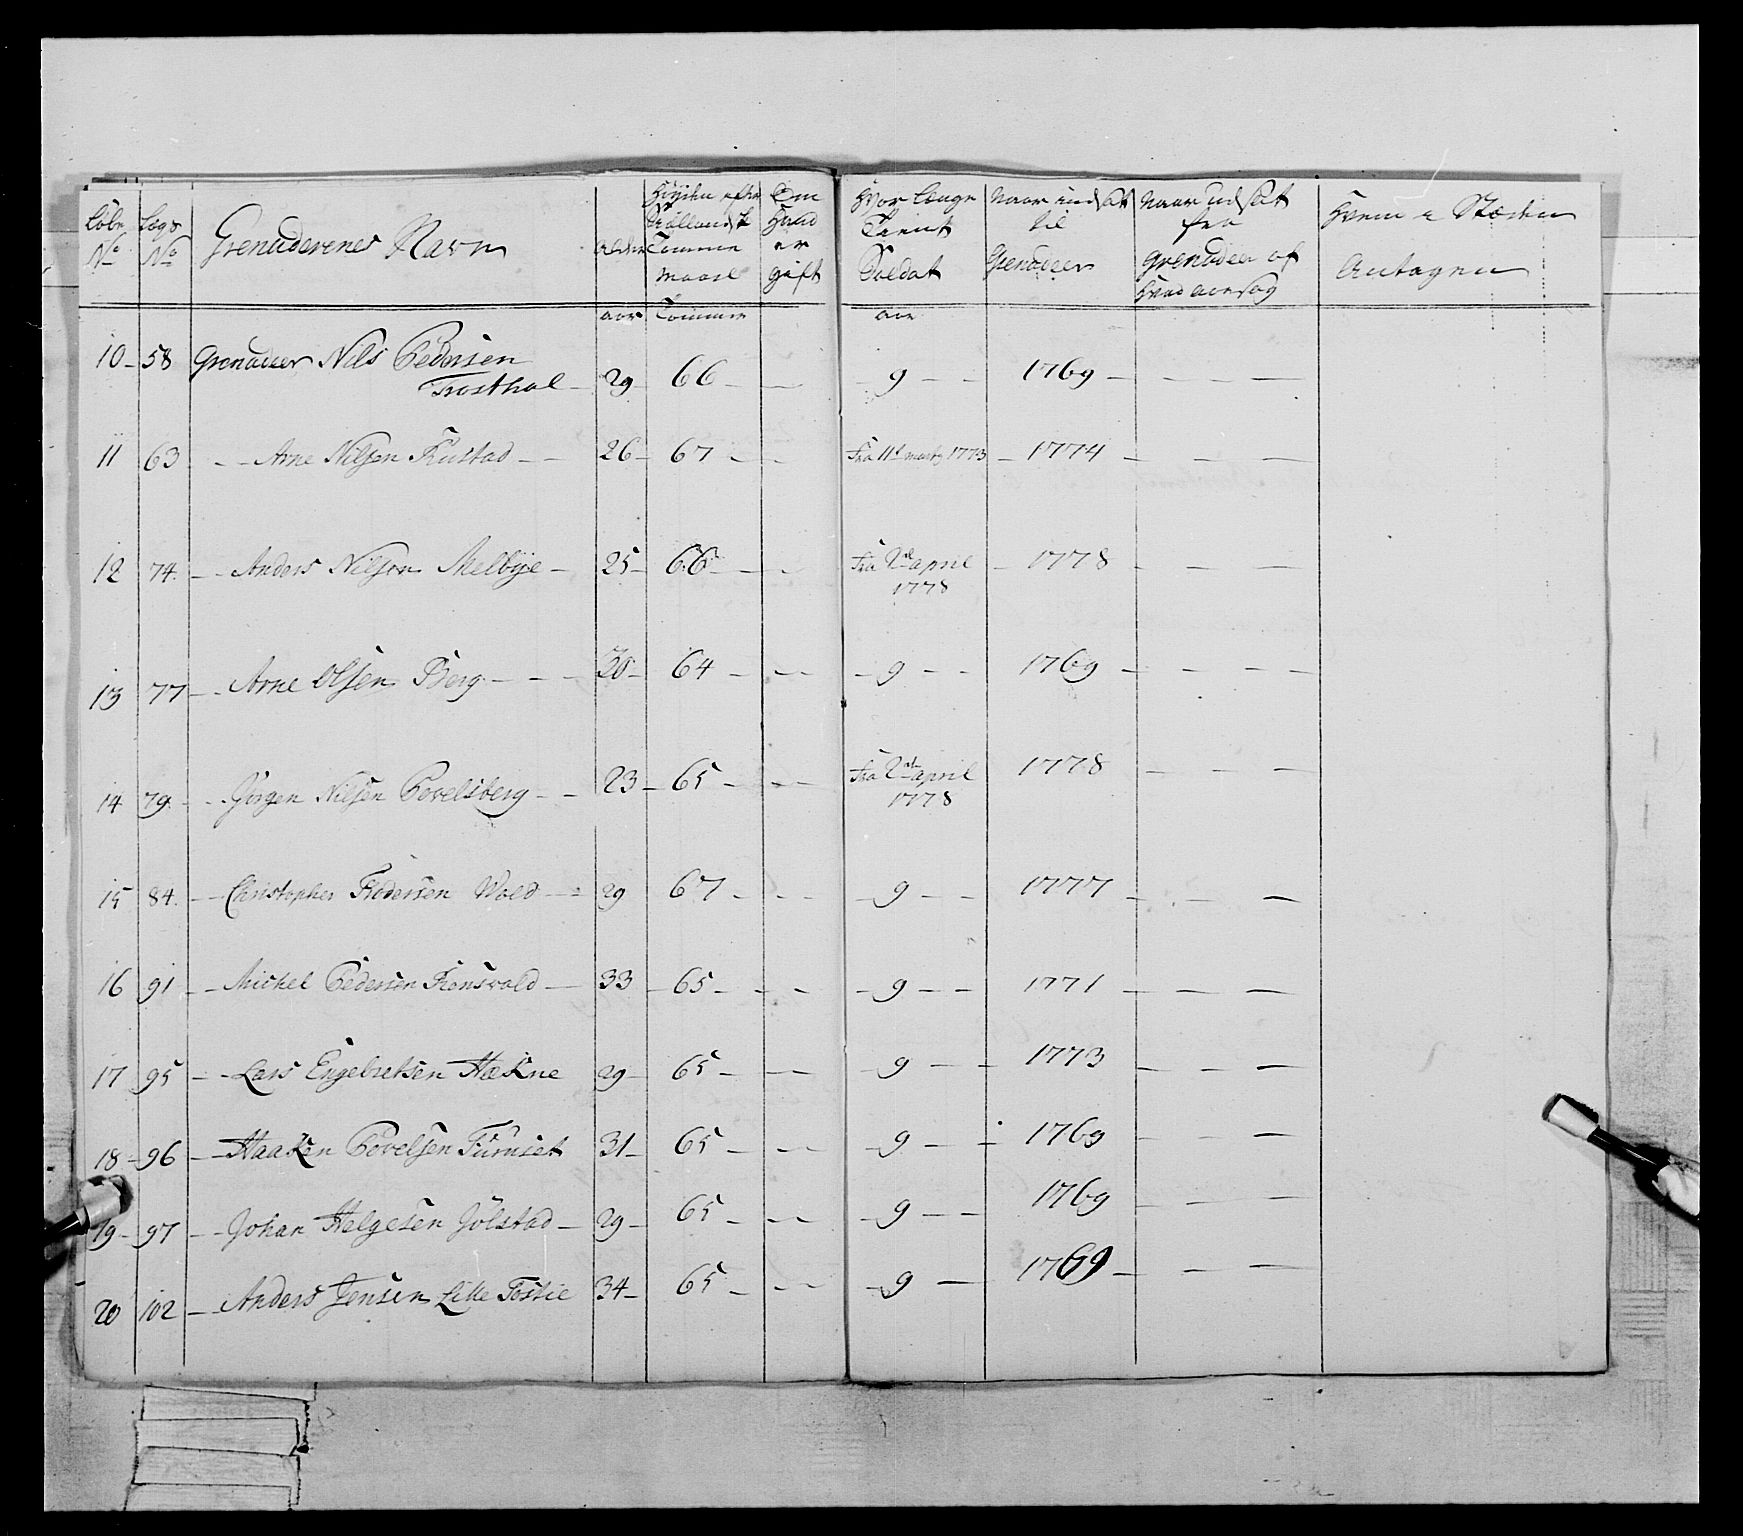 Løbe No | Lægs No | Grenaderenes Navn | Alder | Høyden efter Hollandsk Tomme Maael | Om Hand er gift | Hvor længe Tient Soldat | Naar indsat til Grenadeer | Naar udsat fra Grenadeer af hvad aarsag | Hvem i Stæden Antagen
aar | Tomme | aar
10 - 58 Grenadeer Nils Pedersen
Trosthol - 29 66 - - 9 - - 1769 - - - -
11 63 - - Arne Nilsen Rustad - - 26 - 67 - - Fra 11t marty 1773 - 1774 - - -
12 74. - - Anders Nilsen Melbye - 25 - 66 - - Fra 2d april 1778 - 1778 - - -
13 77 - - Arne Olsen Berg - - - 30 - 64 - - - 9 - - 1769 - - - -
14 79. - - Jörgen Nilsen Povelsberg - - 23 - 65 - - - Fra 2d april 1778 1778 - - -
15 84. - - Christopher Pedersen Wold - - 29 67 - - - 9 - - 1777 - - -
16 91 - - Michel Pedersen Tronsvold - 33 - 65 - - - - 9 - - 1771 - - -
17 95 - - Lars Engebretsen Hækne 29 - 65 - - - 9 - - 1773 - - -
18 - 96 - - Haaken Povelsen Furuset 31 - 65 - - - - 9 - - 1769 - - -
19 - 97 - - Johan Helgesen Jölstad - 29 - 65 - - - - 9 - - 1769 - - -
20 102 - - Anders Jensen Lille Tostie 34 - 65 - - - - 9 - 1769 - - -